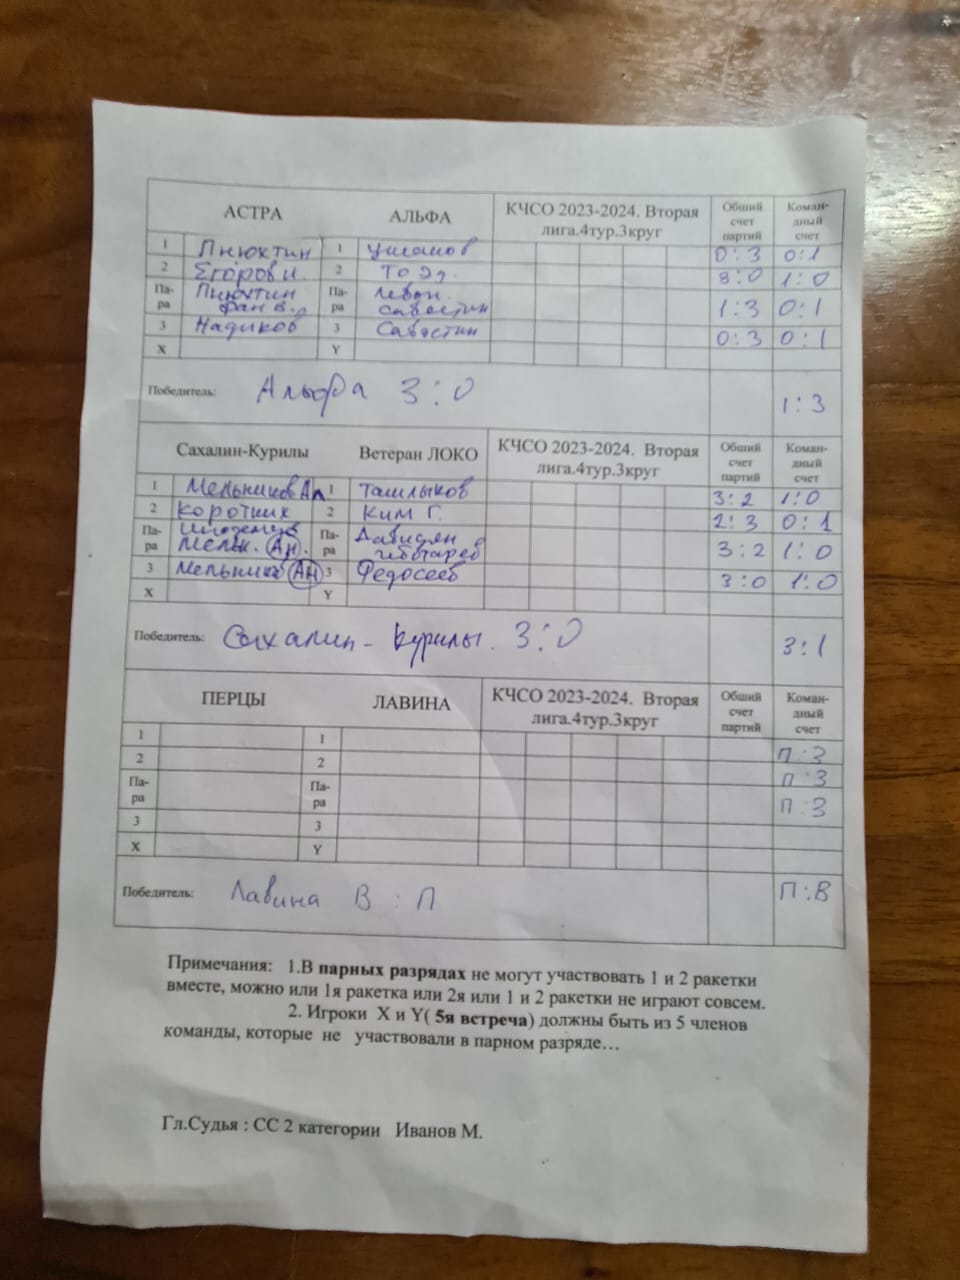 АСТРА АЛЬФА КЧСО 2023-2024. Вторая лига.4тур.3круг Общий счет партий Коман-дный счет
1 Пнюхтин 1 Ушаков 0:3 0:1
2 Егоров И. 2 То Эд. 3:0 1:0
Па-ра Пнюхтин Па-ра Левон. Савостин 1:3 0:1
3 Надиков 3 Савостин 0:3 0:1
X Y
Победитель: Альфа 3:0 1:3
Сахалин-Курилы Ветеран ЛОКО КЧСО 2023-2024. Вторая лига.4тур.3круг Общий счет партий Коман-дный счет
1 Мельников Ал 1 Ташлыков 3:2 1:0
2 Коротких 2 Ким Г. 2:3 0:1
Па-ра Мельн. Ан. Па-ра Давидян 3:2 1:0
3 Мельников Ан 3 Федосеев 3:0 1:0
X Y
Победитель: Сахалин-Курилы. 3:0 3:1
ПЕРЦЫ ЛАВИНА КЧСО 2023-2024. Вторая лига.4тур.3круг Общий счет партий Коман-дный счет
1 1 П:З
2 2 П:З
Па-ра Па-ра П:З
3 3
X Y
Победитель: Лавина В:П П:В
Примечания: 1.В парных разрядах не могут участвовать 1 и 2 ракетки
вместе, можно или 1я ракетка или 2я или 1 и 2 ракетки не играют совсем.
2. Игроки X и Y( 5я встреча) должны быть из 5 членов
команды, которые не участвовали в парном разряде…
Гл.Судья : СС 2 категории Иванов М.